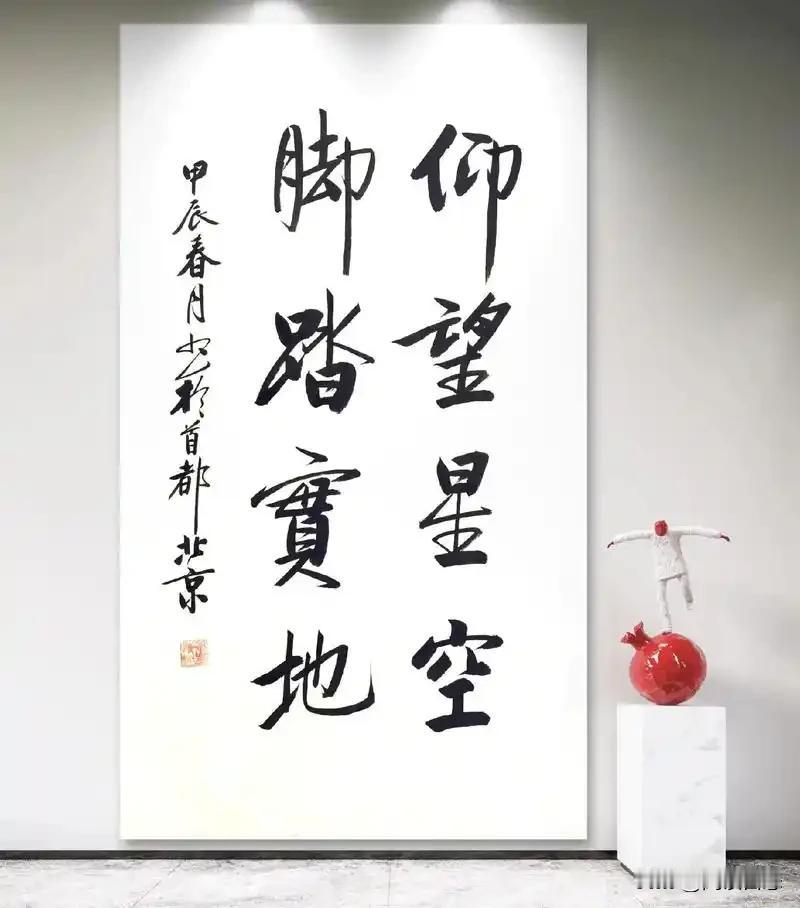 仰望星空
脚踏實地
甲辰春月书於首都北京